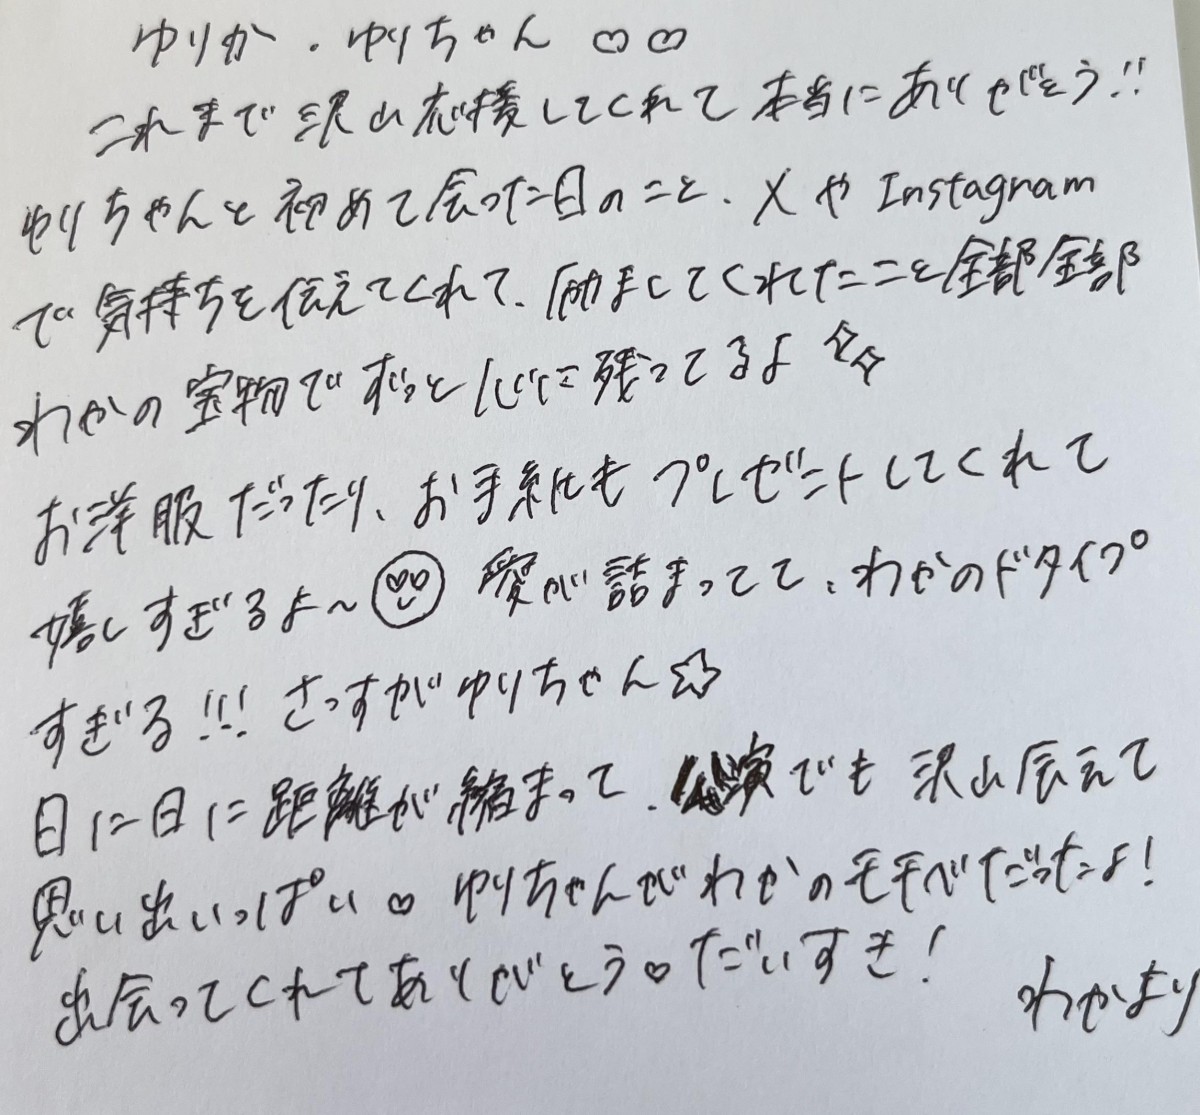 ゆりか・ゆりちゃん ♡♡
これまで沢山応援してくれて本当にありがとう!!
ゆりちゃんと初めて会った日のこと、XやInstagram
で気持ちを伝えてくれて、励ましてくれたこと全部全部
わかの宝物でずっと心に残ってるよ
お洋服だったり、お手紙もプレゼントしてくれて
嬉しすぎるよ〜 愛が詰まってて、わかのドタイプ
すぎる!!! さっすがゆりちゃん☆
日に日に距離が縮まって、公演でも沢山会えて
思い出いっぱい♡ ゆりちゃんがわかのモチベだったよ!
出会ってくれてありがとう♡だいすき!
わかより